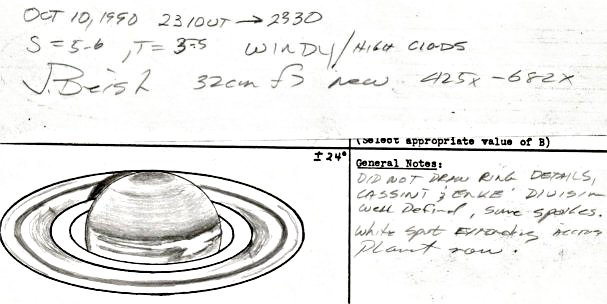 OCT 10, 1990 2310UT → 2330
S = 5-6 , T = 3.5 WINDY/HIGH CLOUDS
J. Beish 32cm f5 New. 425x - 682x
(Select appropriate value of B)
± 24°
General Notes:
DID NOT DRAW RING DETAILS,
CASSINI & ENKE' DIVISION
Well Defined, some spokes.
White Spot Extending Across
Planet now.